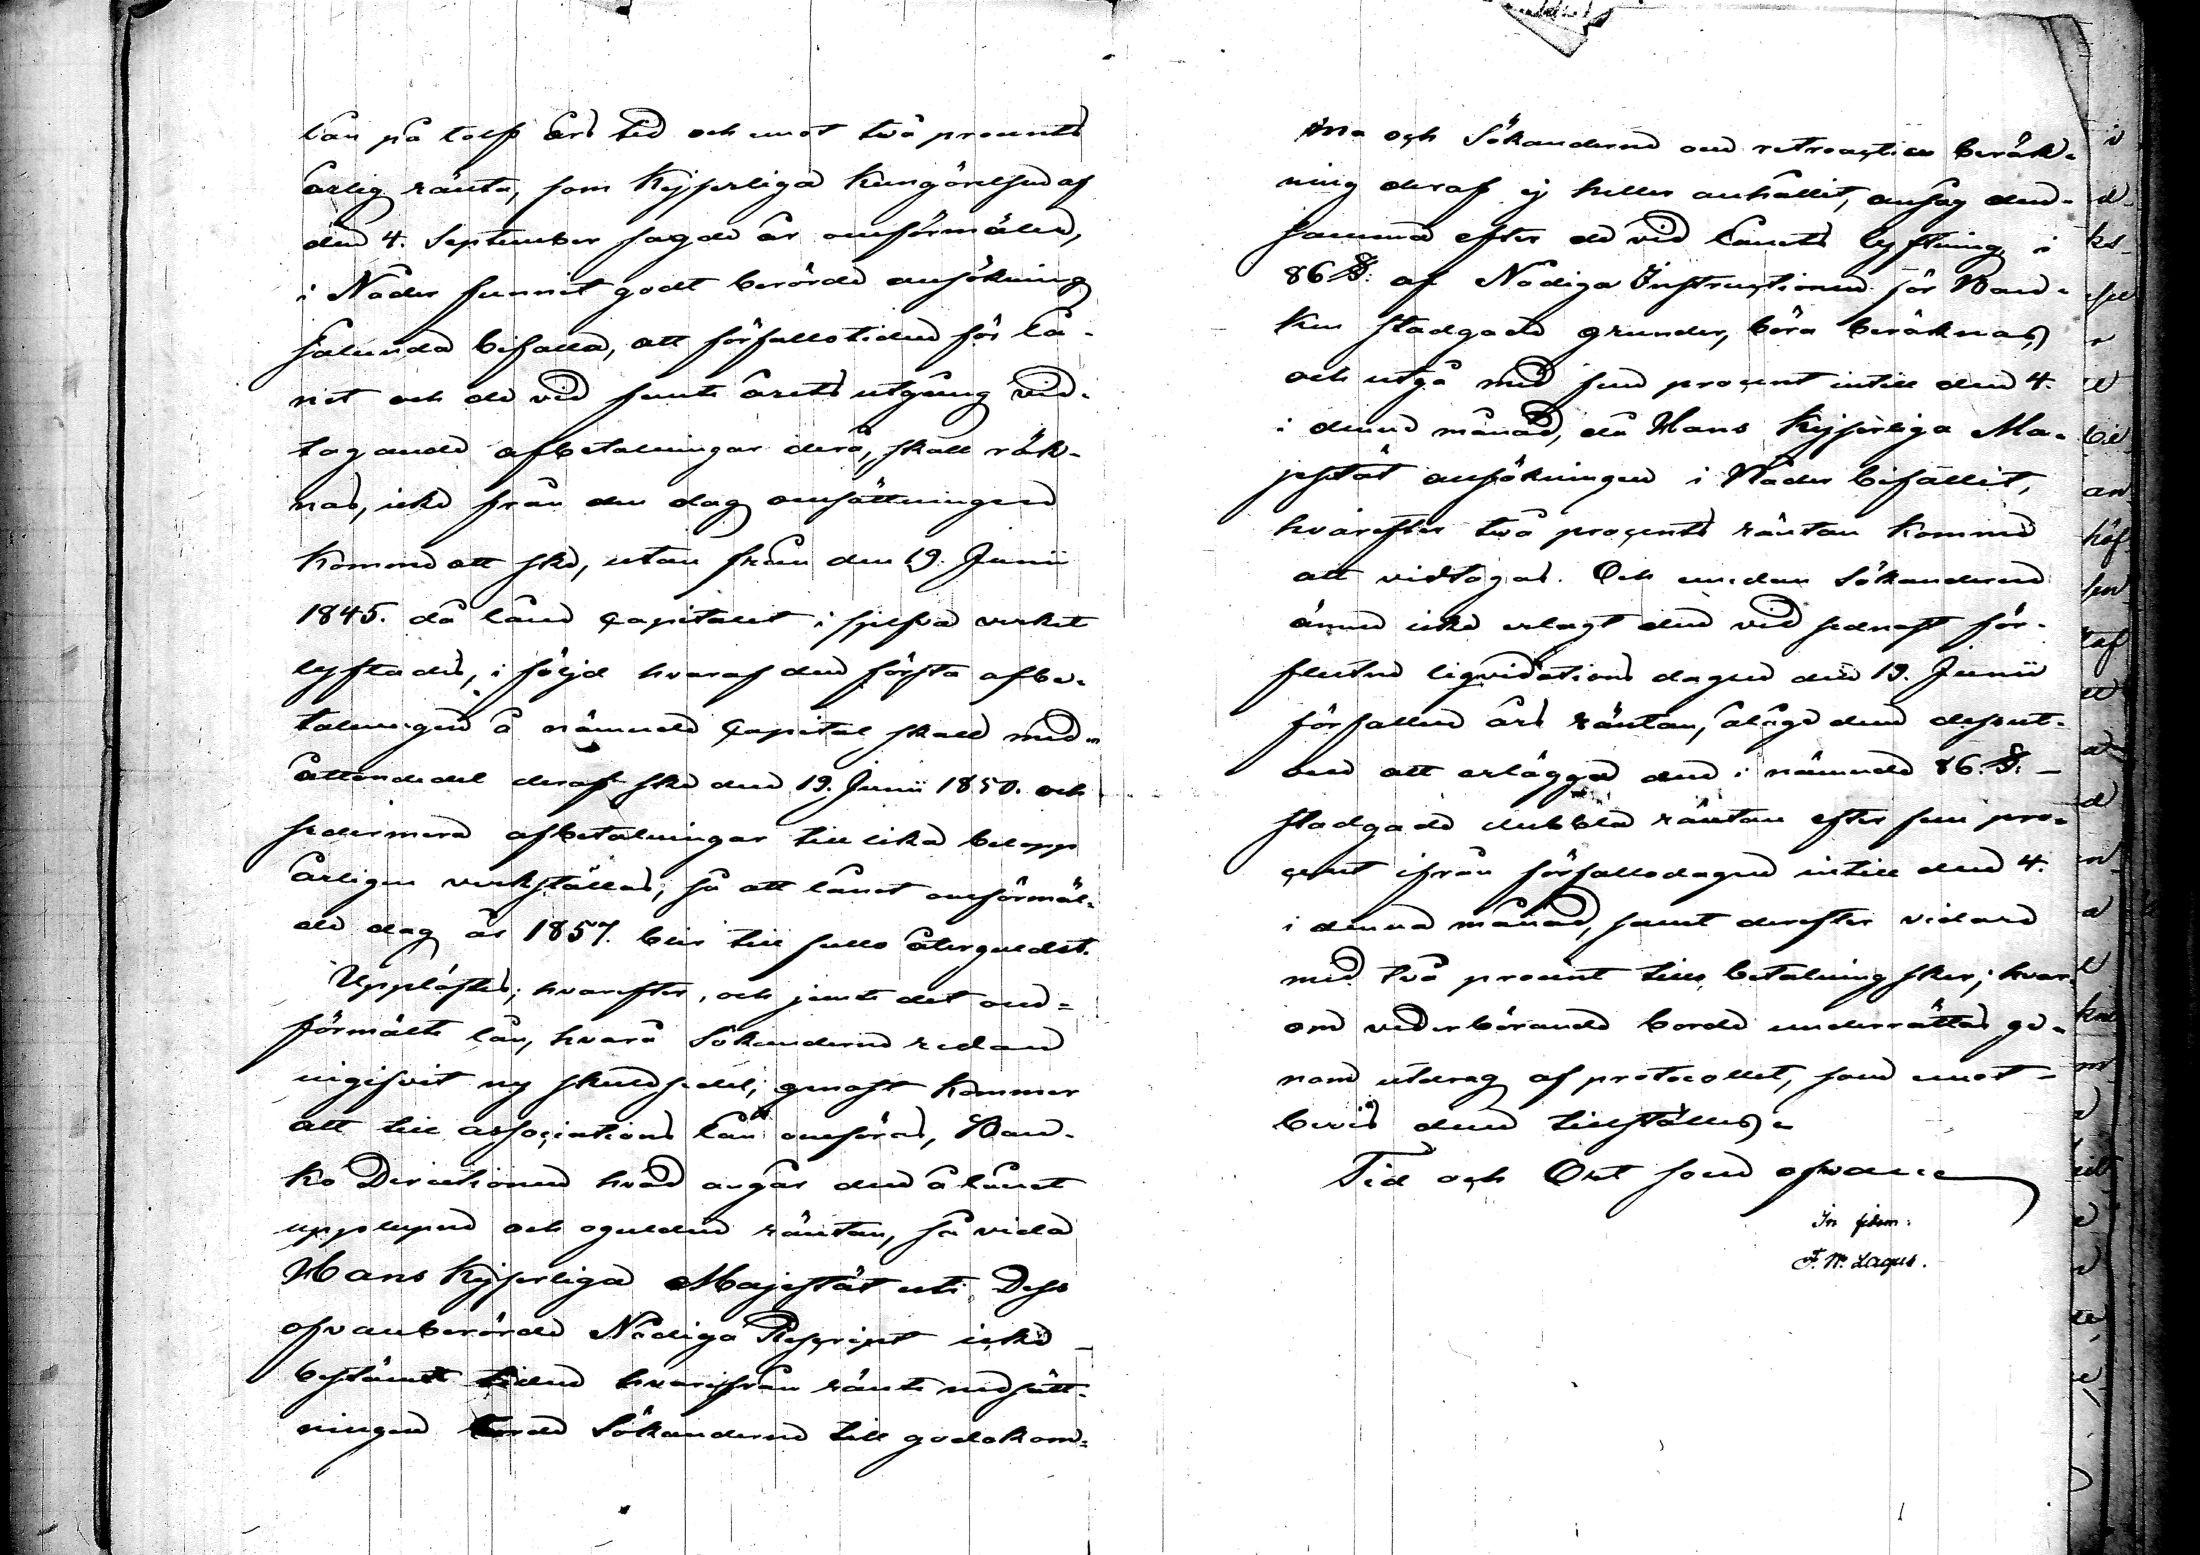 lån på tolf års tid och emot två procents
årlig ränta, som Kejserliga Kungörelsen af
den 4. September sagde år omförmäler,
i Nåder funnit godt berörde ansökning
sålunda bifalla, att förfallotiden för lå-
net och de vid femte årets utgång vid-
tagande afbetalningar derå, skall räk-
nas, icke från den dag omsättningen
kommer att ske, utan från den 19. Junii
1845. då låne capitalet i sjelfva verket
lyftades, i följd hvaraf den första afbe-
talningen å nämnde Capital skall med
åttondedel deraf ske den 19. Junii 1850. och
sedermera afbetalningar till lika belopp
årligen verkställas, så att lånet omförmäl-
de dag år 1857. blir till fullo återguldet.
Upplästes; hvarefter, och jemte det om-
förmälte lån, hvarå Sökanderne redan
ingifvit ny skuldsedel, genast kommer
att till associations lån omföras, Ban-
ko Directionen hvad angår den å lånet
upplupne och oguldne räntan, så vida
Hans Kejserliga Majestät uti Dess
ofvanberörde Nådiga Rescript icke
bestämt tiden hvarifrån räntenedsätt-
ningen borde Sökanderne till godokom-
ma och Sökanderne om retroactiv beräk-
ning deraf ej heller anhållit, ansåg den-
samma efter de vid lånets lyftning i
86 §. af Nådiga Instructionen för Ban-
ken stadgade grunder, böra beräknas,
och utgå med fem procent intill den 4.
i denne månad, då Hans Kejserliga Ma-
jestät ansökningen i Nåder bifallit,
hvarefter två procents räntan komme
att vidtagas. Och emedan Sökanderne
ännu icke erlagt den vid sednast för-
flutne liqvidations dagen den 19. Junii
förfallne års räntan, ålåge dem dessut-
om att erlägga den i nämnde 86. §.
stadgade dubbla räntan efter fem pro-
cent ifrån förfallodagen intill den 4.
i denna månad, samt derefter vidare
med två procent tills betalning sker; hvar-
om vederbörande borde underrättas ge-
nom utdrag af protocollet, som emot
bevis dem tillställes.
Tid och Ort som ofvan
In fidem:
F. W. Lagus.